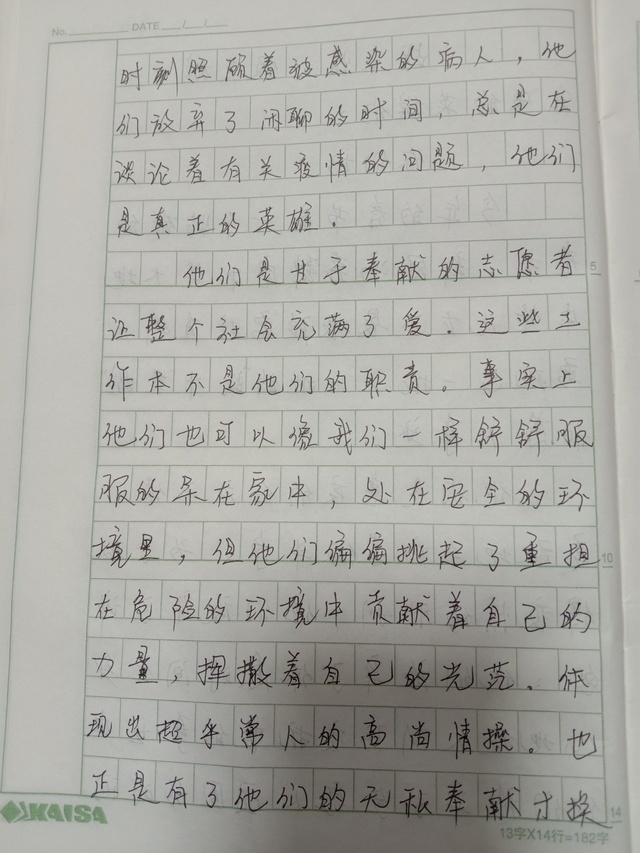 No. DATE / /
时刻照顾着被感染的病人，他
们放弃了闲聊的时间，总是在
谈论着有关疫情的问题，他们
是真正的英雄．
他们是甘于奉献的志愿者
5
让整个社会充满了爱．这些工
作本不是他们的职责。事实上
他们也可以像我们一样舒舒服
服的呆在家中，处在安全的环
境里，但他们偏偏挑起了重担
10
在危险的环境中贡献着自己的
力量，挥散着自己的光芒．体
现出超乎常人的高尚情操。也
正是有了他们的无私奉献才换
14
KAISA
13字X14行=182字